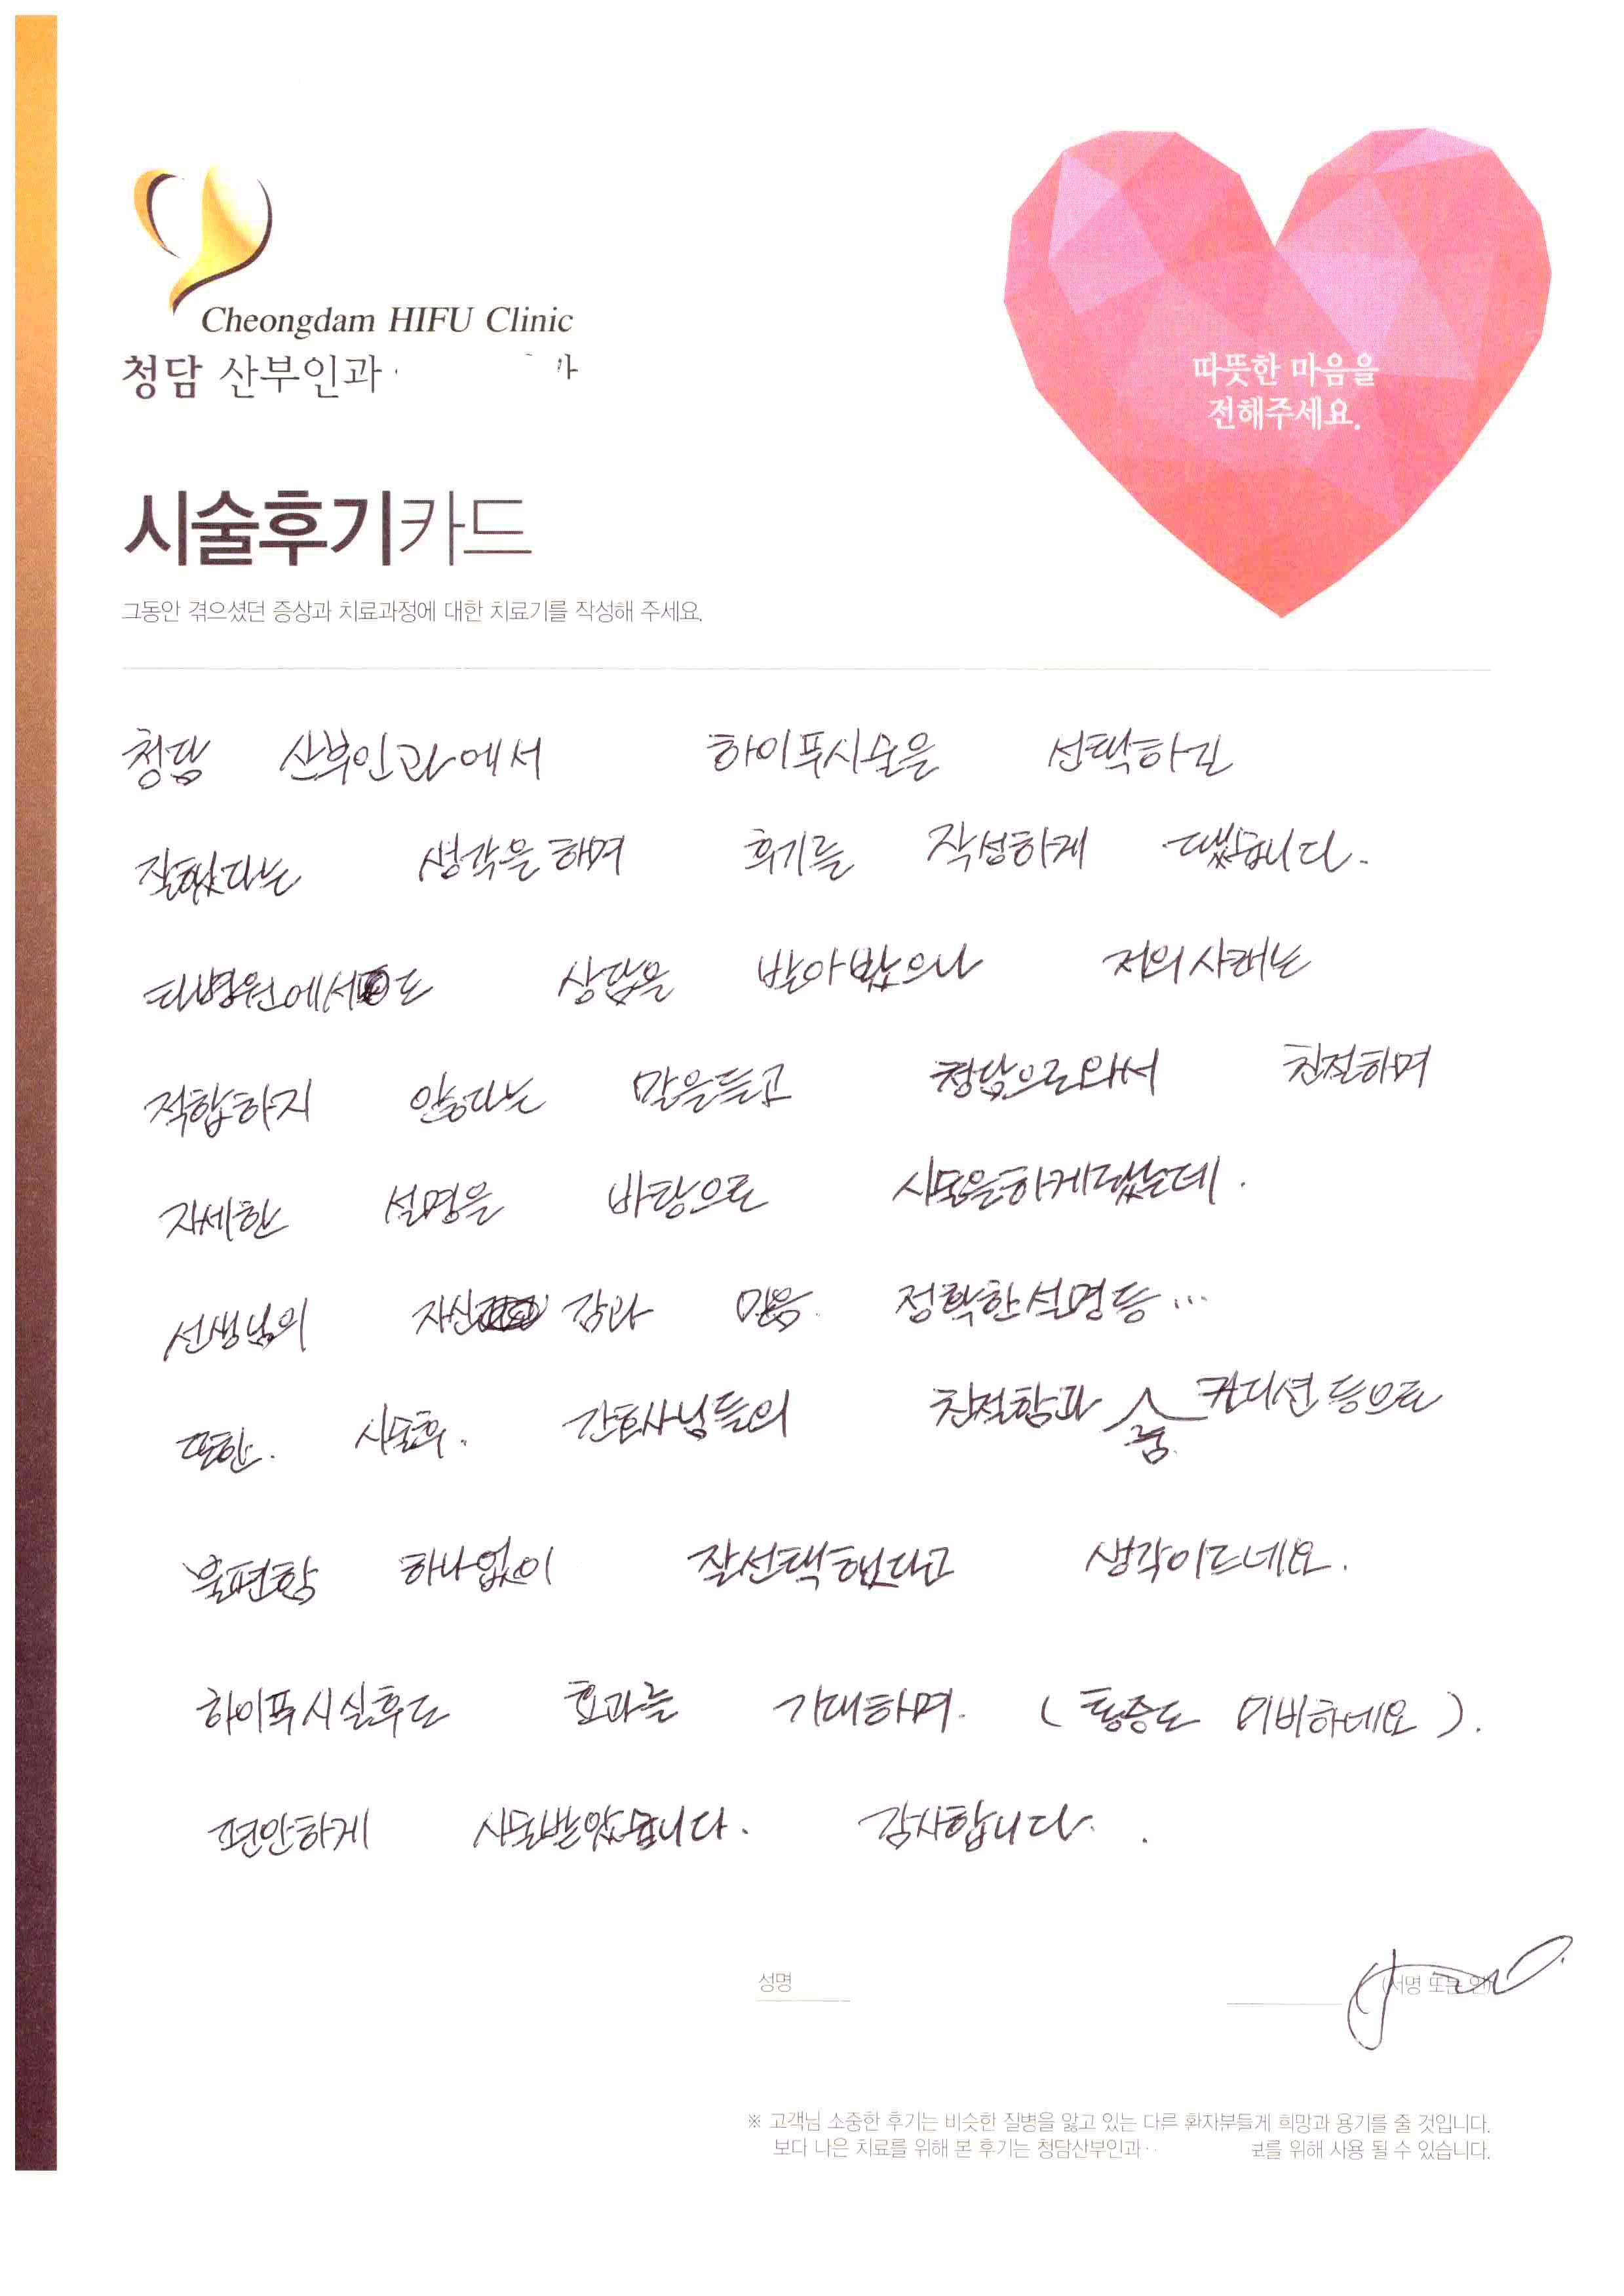 Cheongdam HIFU Clinic
청담 산부인과
따뜻한 마음을
전해주세요.
시술후기카드
그동안 겪으셨던 증상과 치료과정에 대한 치료기를 작성해 주세요.
청담 산부인과에서 하이푸시술은 선택하길
잘했다는 생각을 하며 후기를 작성하게 됐습니다.
타병원에서도 상담을 받아봤으나 저의 사례는
적합하지 않다는 말을듣고 청담으로와서 친절하며
자세한 설명을 바탕으로 시술을하게됐는데.
선생님의 자신감과 믿음. 정확한 설명등...
또한. 시술후. 간호사님들의 친절함과 룸. 컨디션 등으로
불편함 하나없이 잘선택했다고 생각이드네요.
하이푸시실후도 효과를 기대하며. (통증도 미비하네요).
편안하게 시술받았습니다. 감사합니다.
성명 (서명 또는 인)
※ 고객님 소중한 후기는 비슷한 질병을 앓고 있는 다른 환자분들게 희망과 용기를 줄 것입니다.
보다 나은 치료를 위해 본 후기는 청담산부인과 를 위해 사용 될 수 있습니다.